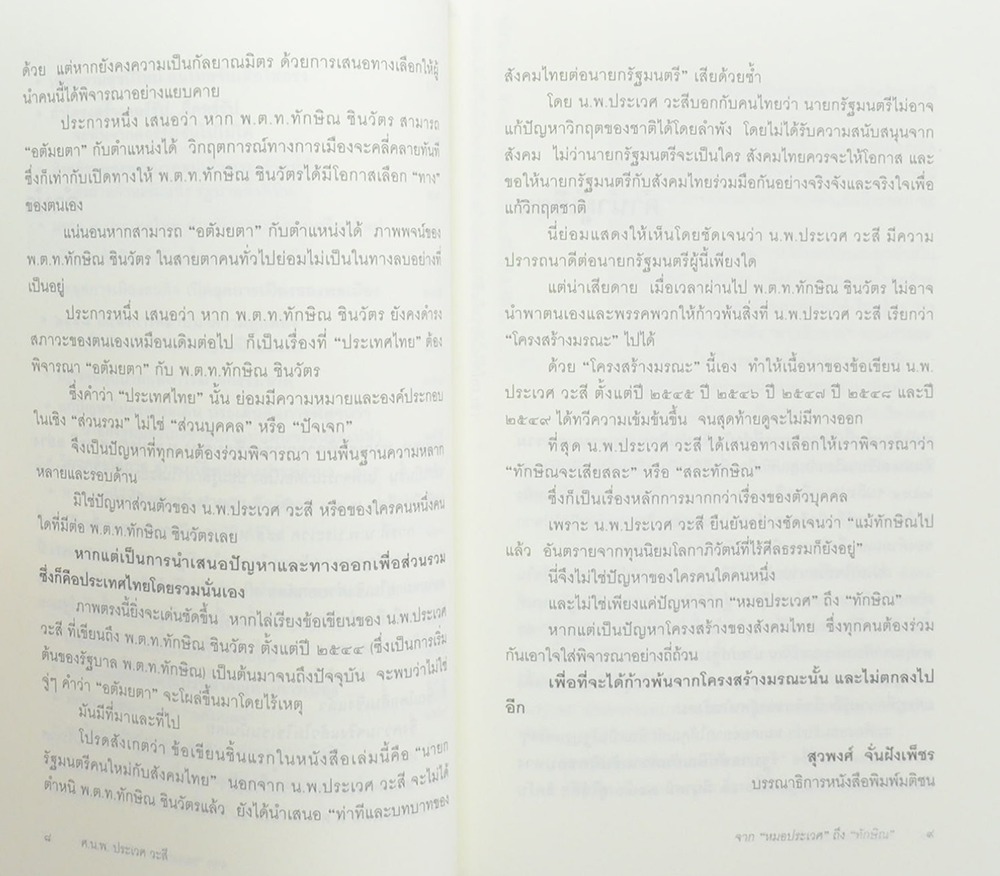 ด้วย แต่หากยังคงความเป็นกัลยาณมิตร ด้วยการเสนอทางเลือกให้ผู้
นำคนนี้ได้พิจารณาอย่างแยบคาย
ประการหนึ่ง เสนอว่า หาก พ.ต.ท.ทักษิณ ชินวัตร สามารถ
“อตัมยตา” กับตำแหน่งได้ วิกฤตการณ์ทางการเมืองจะคลี่คลายทันที
ซึ่งก็เท่ากับเปิดทางให้ พ.ต.ท.ทักษิณ ชินวัตรได้มีโอกาสเลือก “ทาง”
ของตนเอง
แน่นอนหากสามารถ “อตัมยตา” กับตำแหน่งได้ ภาพพจน์ของ
พ.ต.ท.ทักษิณ ชินวัตร ในสายตาคนทั่วไปย่อมไม่เป็นในทางลบอย่างที่
เป็นอยู่
ประการหนึ่ง เสนอว่า หาก พ.ต.ท.ทักษิณ ชินวัตร ยังคงดำรง
สภาวะของตนเองเหมือนเดิมต่อไป ก็เป็นเรื่องที่ “ประเทศไทย” ต้อง
พิจารณา “อตัมยตา” กับ พ.ต.ท.ทักษิณ ชินวัตร
ซึ่งคำว่า “ประเทศไทย” นั้น ย่อมมีความหมายและองค์ประกอบ
ในเชิง “ส่วนรวม” ไม่ใช่ “ส่วนบุคคล” หรือ “ปัจเจก”
จึงเป็นปัญหาที่ทุกคนต้องร่วมพิจารณา บนพื้นฐานความหลาก
หลายและรอบด้าน
มิใช่ปัญหาส่วนตัวของ น.พ.ประเวศ วะสี หรือของใครคนหนึ่งคน
ใดที่มีต่อ พ.ต.ท.ทักษิณ ชินวัตรเลย
หากแต่เป็นการนำเสนอปัญหาและทางออกเพื่อส่วนรวม
ซึ่งก็คือประเทศไทยโดยรวมนั่นเอง
ภาพตรงนี้ยิ่งจะเด่นชัดขึ้น หากไล่เรียงข้อเขียนของ น.พ.ประเวศ
วะสี ที่เขียนถึง พ.ต.ท.ทักษิณ ชินวัตร ตั้งแต่ปี ๒๕๔๔ (ซึ่งเป็นการเริ่ม
ต้นของรัฐบาล พ.ต.ท.ทักษิณ) เป็นต้นมาจนถึงปัจจุบัน จะพบว่าไม่ใช่
จู่ๆ คำว่า “อตัมยตา” จะโผล่ขึ้นมาโดยไร้เหตุ
มันมีที่มาและที่ไป
โปรดสังเกตว่า ข้อเขียนชิ้นแรกในหนังสือเล่มนี้คือ “นายก
รัฐมนตรีคนใหม่กับสังคมไทย” นอกจาก น.พ.ประเวศ วะสี จะไม่ได้
ตำหนิ พ.ต.ท.ทักษิณ ชินวัตรแล้ว ยังได้นำเสนอ “ท่าทีและบทบาทของ
๘ ศ.น.พ. ประเวศ วะสี
สังคมไทยต่อนายกรัฐมนตรี” เสียด้วยซ้ำ
โดย น.พ.ประเวศ วะสีบอกกับคนไทยว่า นายกรัฐมนตรีไม่อาจ
แก้ปัญหาวิกฤตของชาติได้โดยลำพัง โดยไม่ได้รับความสนับสนุนจาก
สังคม ไม่ว่านายกรัฐมนตรีจะเป็นใคร สังคมไทยควรจะให้โอกาส และ
ขอให้นายกรัฐมนตรีกับสังคมไทยร่วมมือกันอย่างจริงจังและจริงใจเพื่อ
แก้วิกฤตชาติ
นี่ย่อมแสดงให้เห็นโดยชัดเจนว่า น.พ.ประเวศ วะสี มีความ
ปรารถนาดีต่อนายกรัฐมนตรีผู้นี้เพียงใด
แต่น่าเสียดาย เมื่อเวลาผ่านไป พ.ต.ท.ทักษิณ ชินวัตร ไม่อาจ
นำพาตนเองและพรรคพวกให้ก้าวพ้นสิ่งที่ น.พ.ประเวศ วะสี เรียกว่า
“โครงสร้างมรณะ” ไปได้
ด้วย “โครงสร้างมรณะ” นี้เอง ทำให้เนื้อหาของข้อเขียน น.พ.
ประเวศ วะสี ตั้งแต่ปี ๒๕๔๕ ปี ๒๕๔๖ ปี ๒๕๔๗ ปี ๒๕๔๘ และปี
๒๕๔๙ ได้ทวีความเข้มข้นขึ้น จนสุดท้ายดูจะไม่มีทางออก
ที่สุด น.พ.ประเวศ วะสี ได้เสนอทางเลือกให้เราพิจารณาว่า
“ทักษิณจะเสียสละ” หรือ “สละทักษิณ”
ซึ่งก็เป็นเรื่องหลักการมากกว่าเรื่องของตัวบุคคล
เพราะ น.พ.ประเวศ วะสี ยืนยันอย่างชัดเจนว่า “แม้ทักษิณไป
แล้ว อันตรายจากทุนนิยมโลกาภิวัตน์ที่ไร้ศีลธรรมก็ยังอยู่”
นี่จึงไม่ใช่ปัญหาของใครคนใดคนหนึ่ง
และไม่ใช่เพียงแค่ปัญหาจาก “หมอประเวศ” ถึง “ทักษิณ”
หากแต่เป็นปัญหาโครงสร้างของสังคมไทย ซึ่งทุกคนต้องร่วม
กันเอาใจใส่พิจารณาอย่างถี่ถ้วน
เพื่อที่จะได้ก้าวพ้นจากโครงสร้างมรณะนั้น และไม่ตกลงไป
อีก
สุวพงศ์ จั่นฝังเพ็ชร
บรรณาธิการหนังสือพิมพ์มติชน
จาก “หมอประเวศ” ถึง “ทักษิณ” ๙